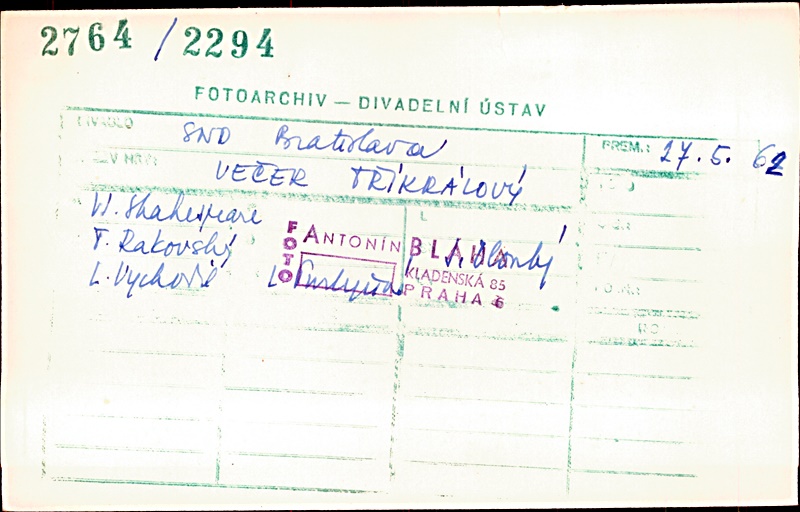 2764 / 2294
FOTOARCHIV — DIVADELNÍ ÚSTAV
DIVADLO SND Bratislava PREM.: 27. 5. 62
NÁZEV HRY: VEČER TŘÍKRÁLOVÝ
W. Shakespeare
F. Rakovský
L. Vychodil L
FOTO ANTONÍN BLÁHA
KLADENSKÁ 85
PRAHA 6